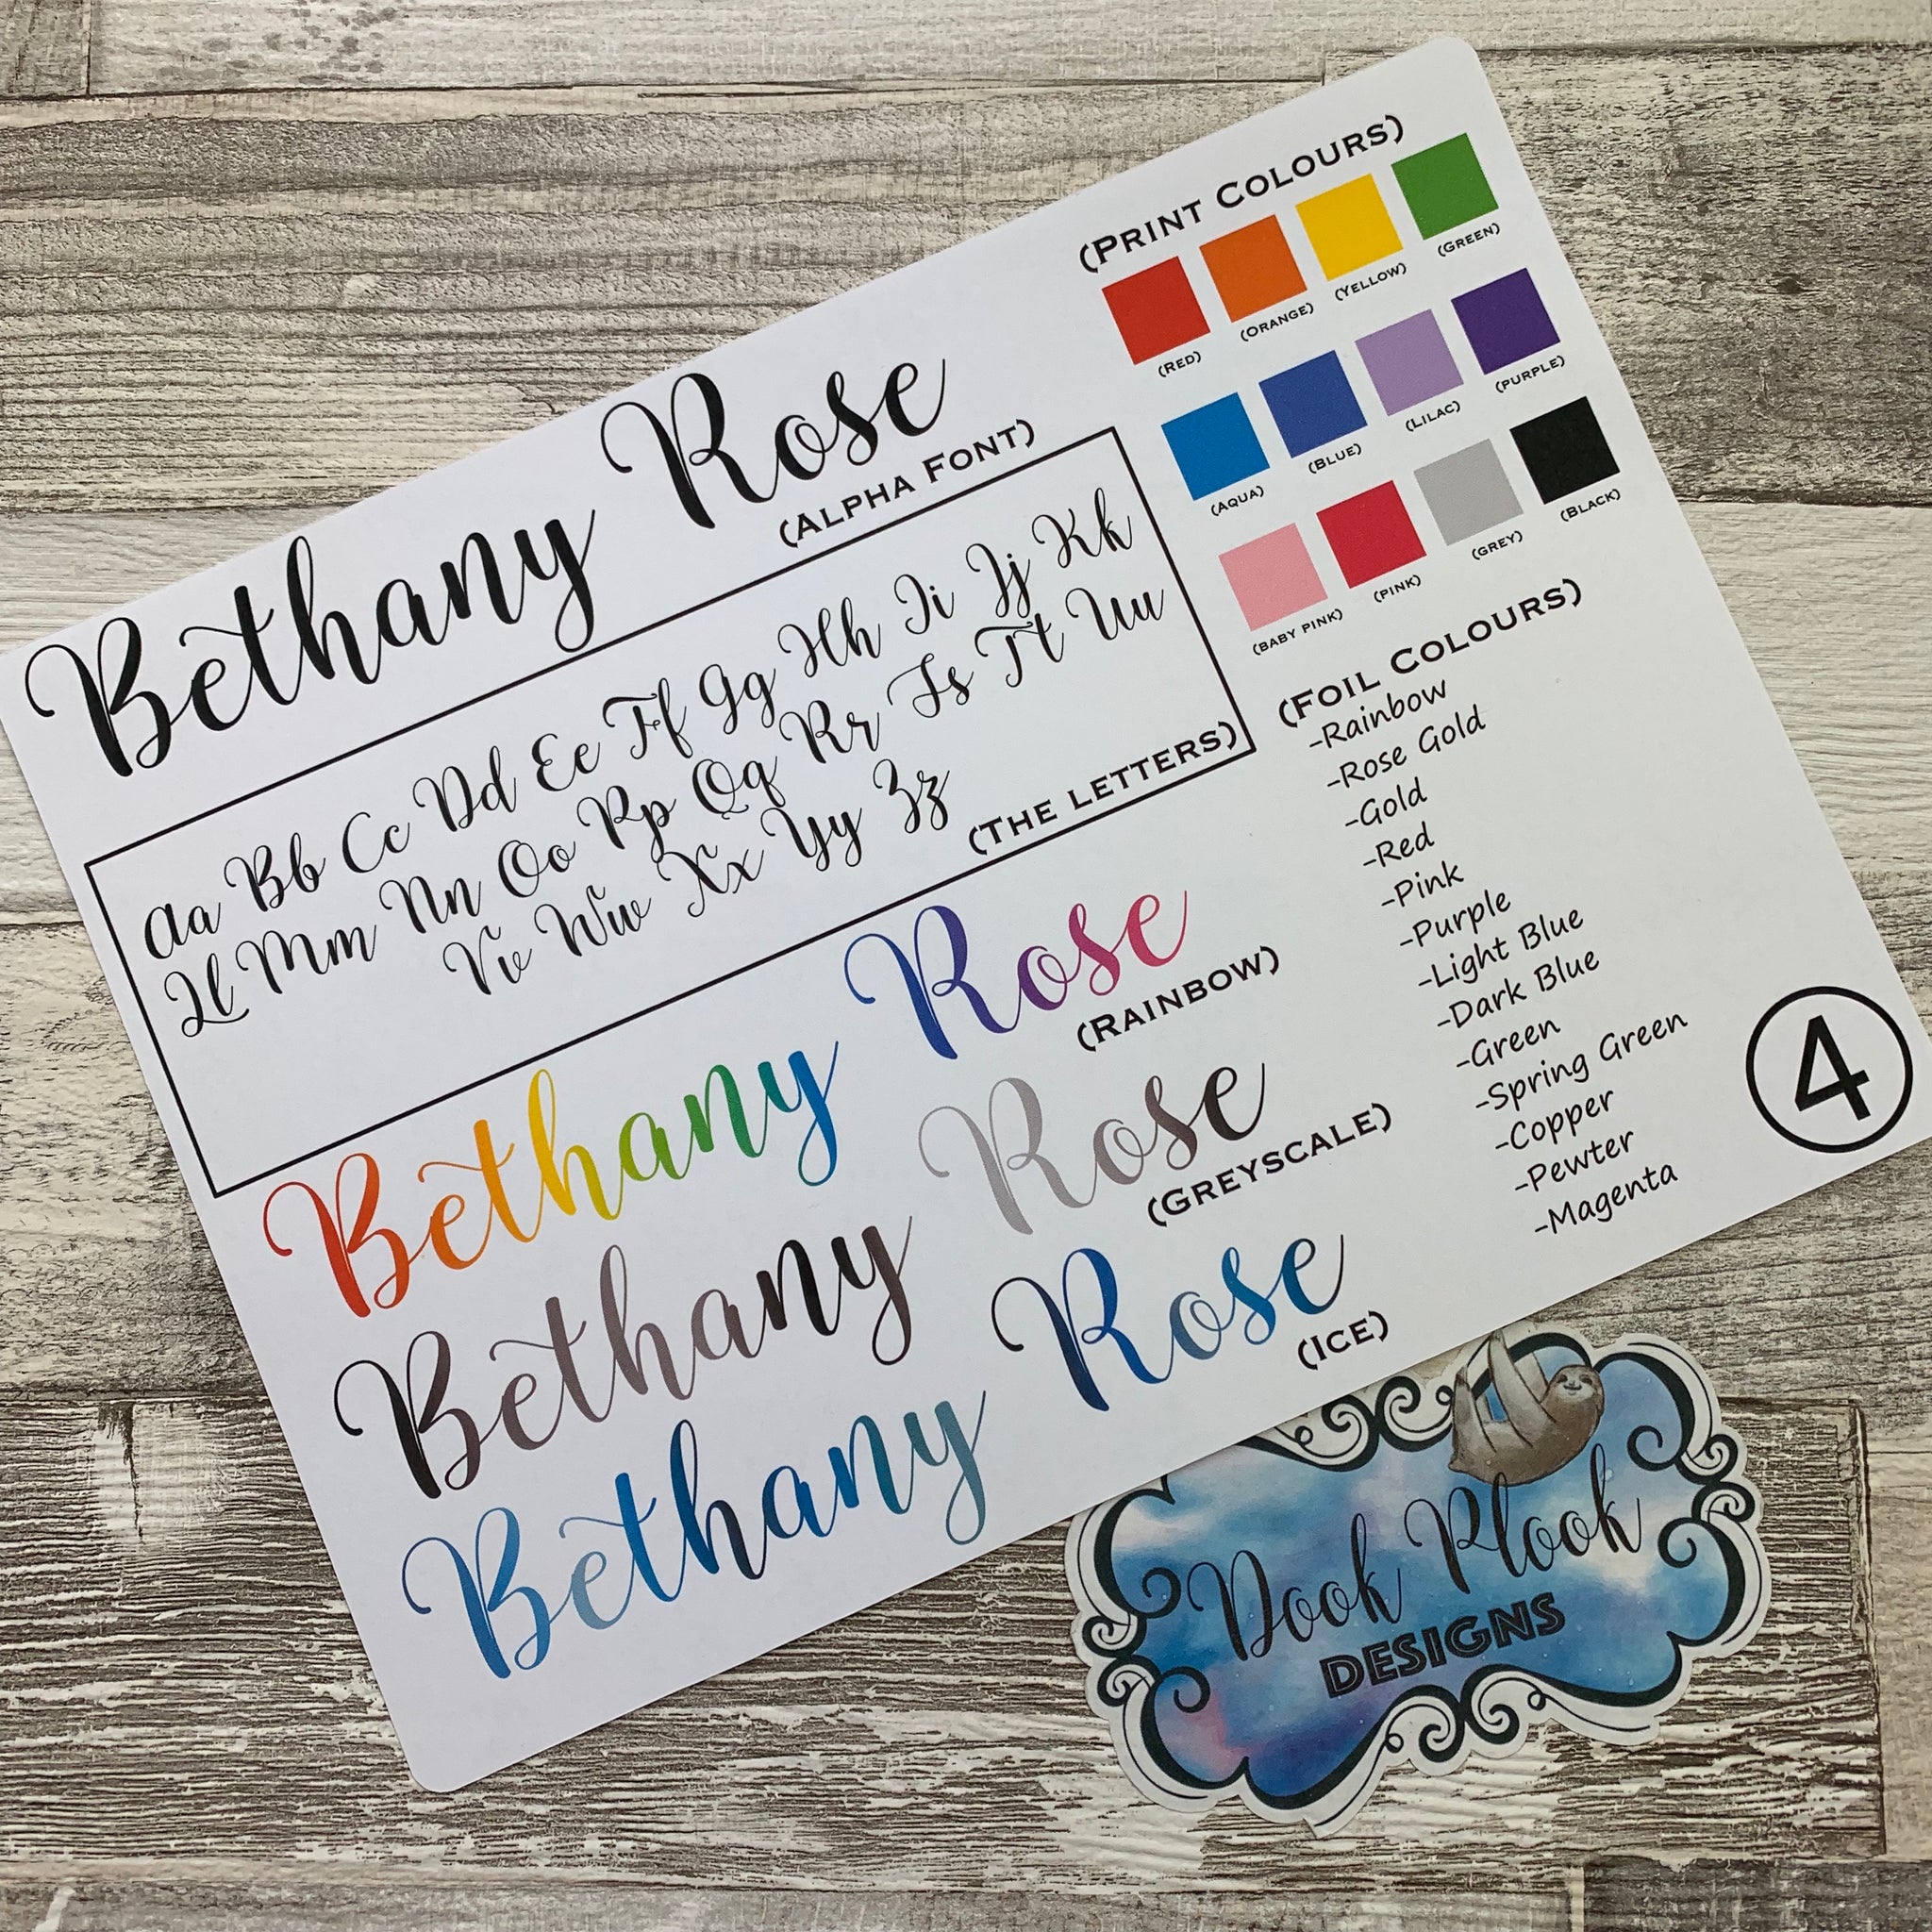 Bethany Rose
(Alpha Font)
Aa Bb Cc Dd Ee Ff Gg Hh Ii Jj Kk
Ll Mm Nn Oo Pp Qq Rr Ss Tt Uu
Vv Ww Xx Yy Zz
(The letters)
Bethany Rose
(Rainbow)
Bethany Rose
(Greyscale)
Bethany Rose
(Ice)
(Print Colours)
(Red) (Orange) (Yellow) (Green)
(Aqua) (Blue) (Lilac) (Purple)
(Baby Pink) (Pink) (Grey) (Black)
(Foil Colours)
-Rainbow
-Rose Gold
-Gold
-Red
-Pink
-Purple
-Light Blue
-Dark Blue
-Green
-Spring Green
-Copper
-Pewter
-Magenta
4
Dook Plook
DESIGNS